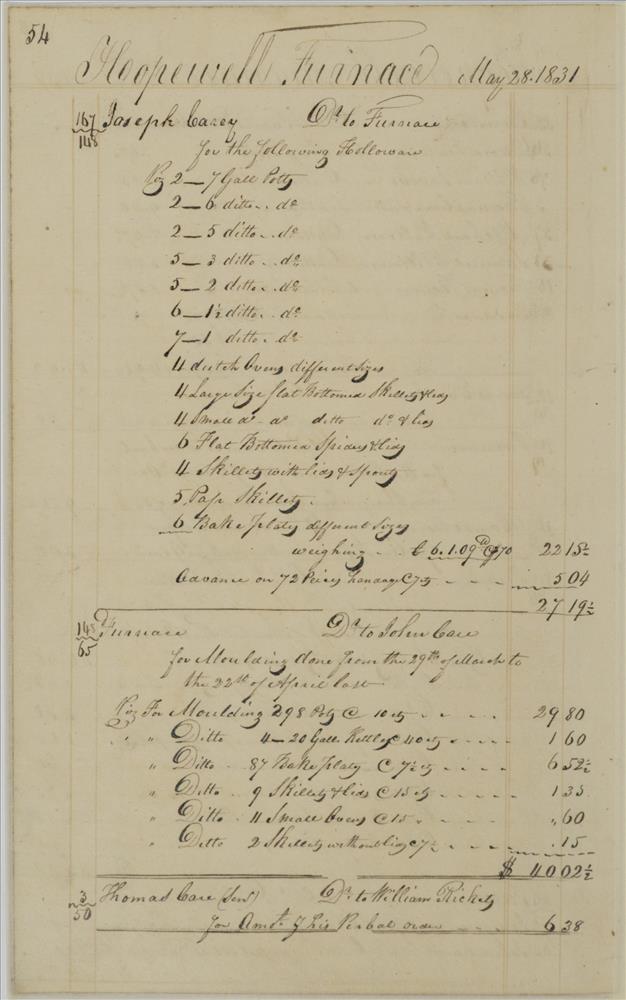 54
Hopewell Furnace May 28. 1831
167
148
Joseph Carey Dr. to Furnace
for the following Holloware
Viz 2—7 Gall Potts
2—6 ditto.. do
2—5 ditto.. do
5—3 ditto.. do
5—2 ditto.. do
6—1½ ditto.. do
7—1 ditto.. do
4 dutch Ovens different Sizes
4 Large Size flat Bottomed Skillets & lids
4 Small do - do ditto do & lids
6 Flat Bottomed Spiders & lids
4 Skillets with lids & Spouts
5 Pap Skillets.
6 Bake plates different Sizes
weighing - - C 6.1.09 @ 70 22 15½
Advance on 72 Peices 7 cts - - - 5 04
27 19½
148
65
Furnace Dr. to John Care
for Moulding done from the 29th of March to
the 22nd of April last
Viz For Moulding 298 Pots @ 10 cts - - - - 29 80
" " Ditto 4—20 Gall. Kettles @ 40 cts - - - - 1 60
" Ditto - 87 Bake plates @ 7½ cts - - - - 6 52½
" Ditto - 9 Skillets & lids @ 15 cts - - - - 1 35
" Ditto - 4 Small Ovens @ 15 - - - - " 60
" Ditto 2 Skillets without lids @ 7½ - - - - .15
$ 40 02½
3
50
Thomas Care (Senr) Dr. to William Rickets
for Amot. of his Verbal order - - - - 6 38